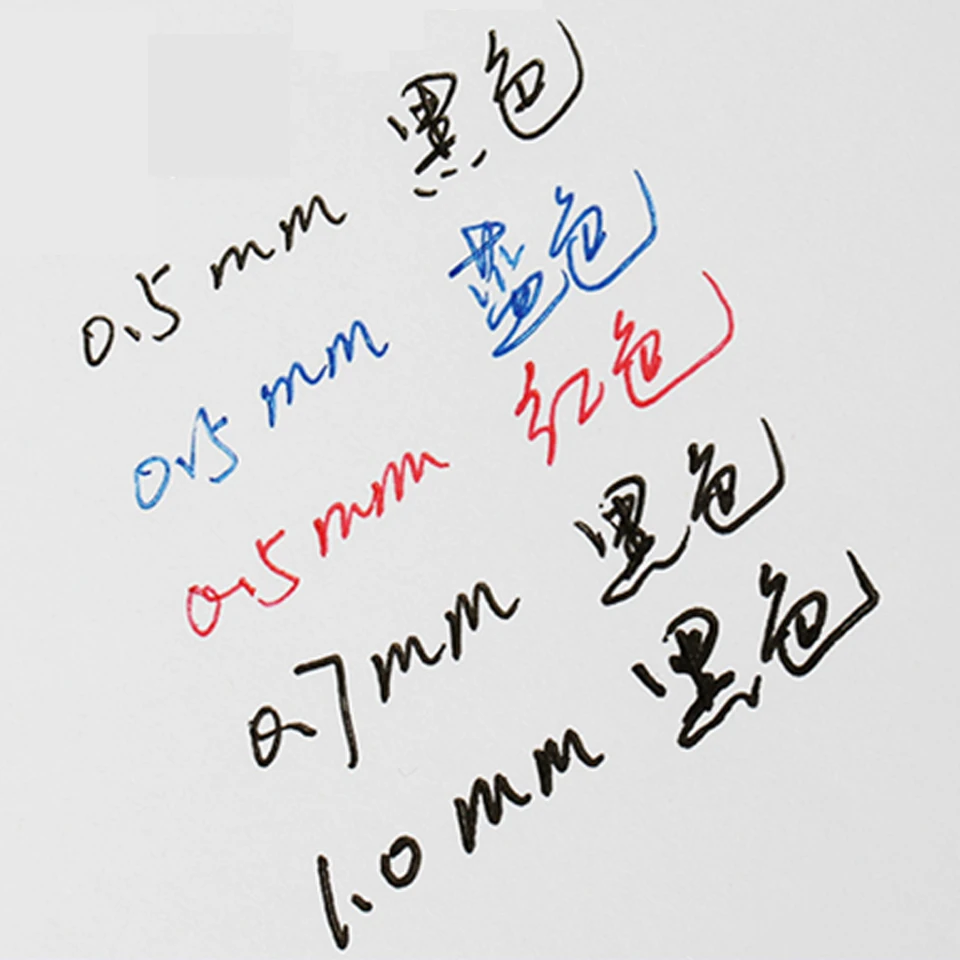 0.5mm 黑色
0.5mm 蓝色
0.5mm 红色
0.7mm 黑色
1.0mm 黑色